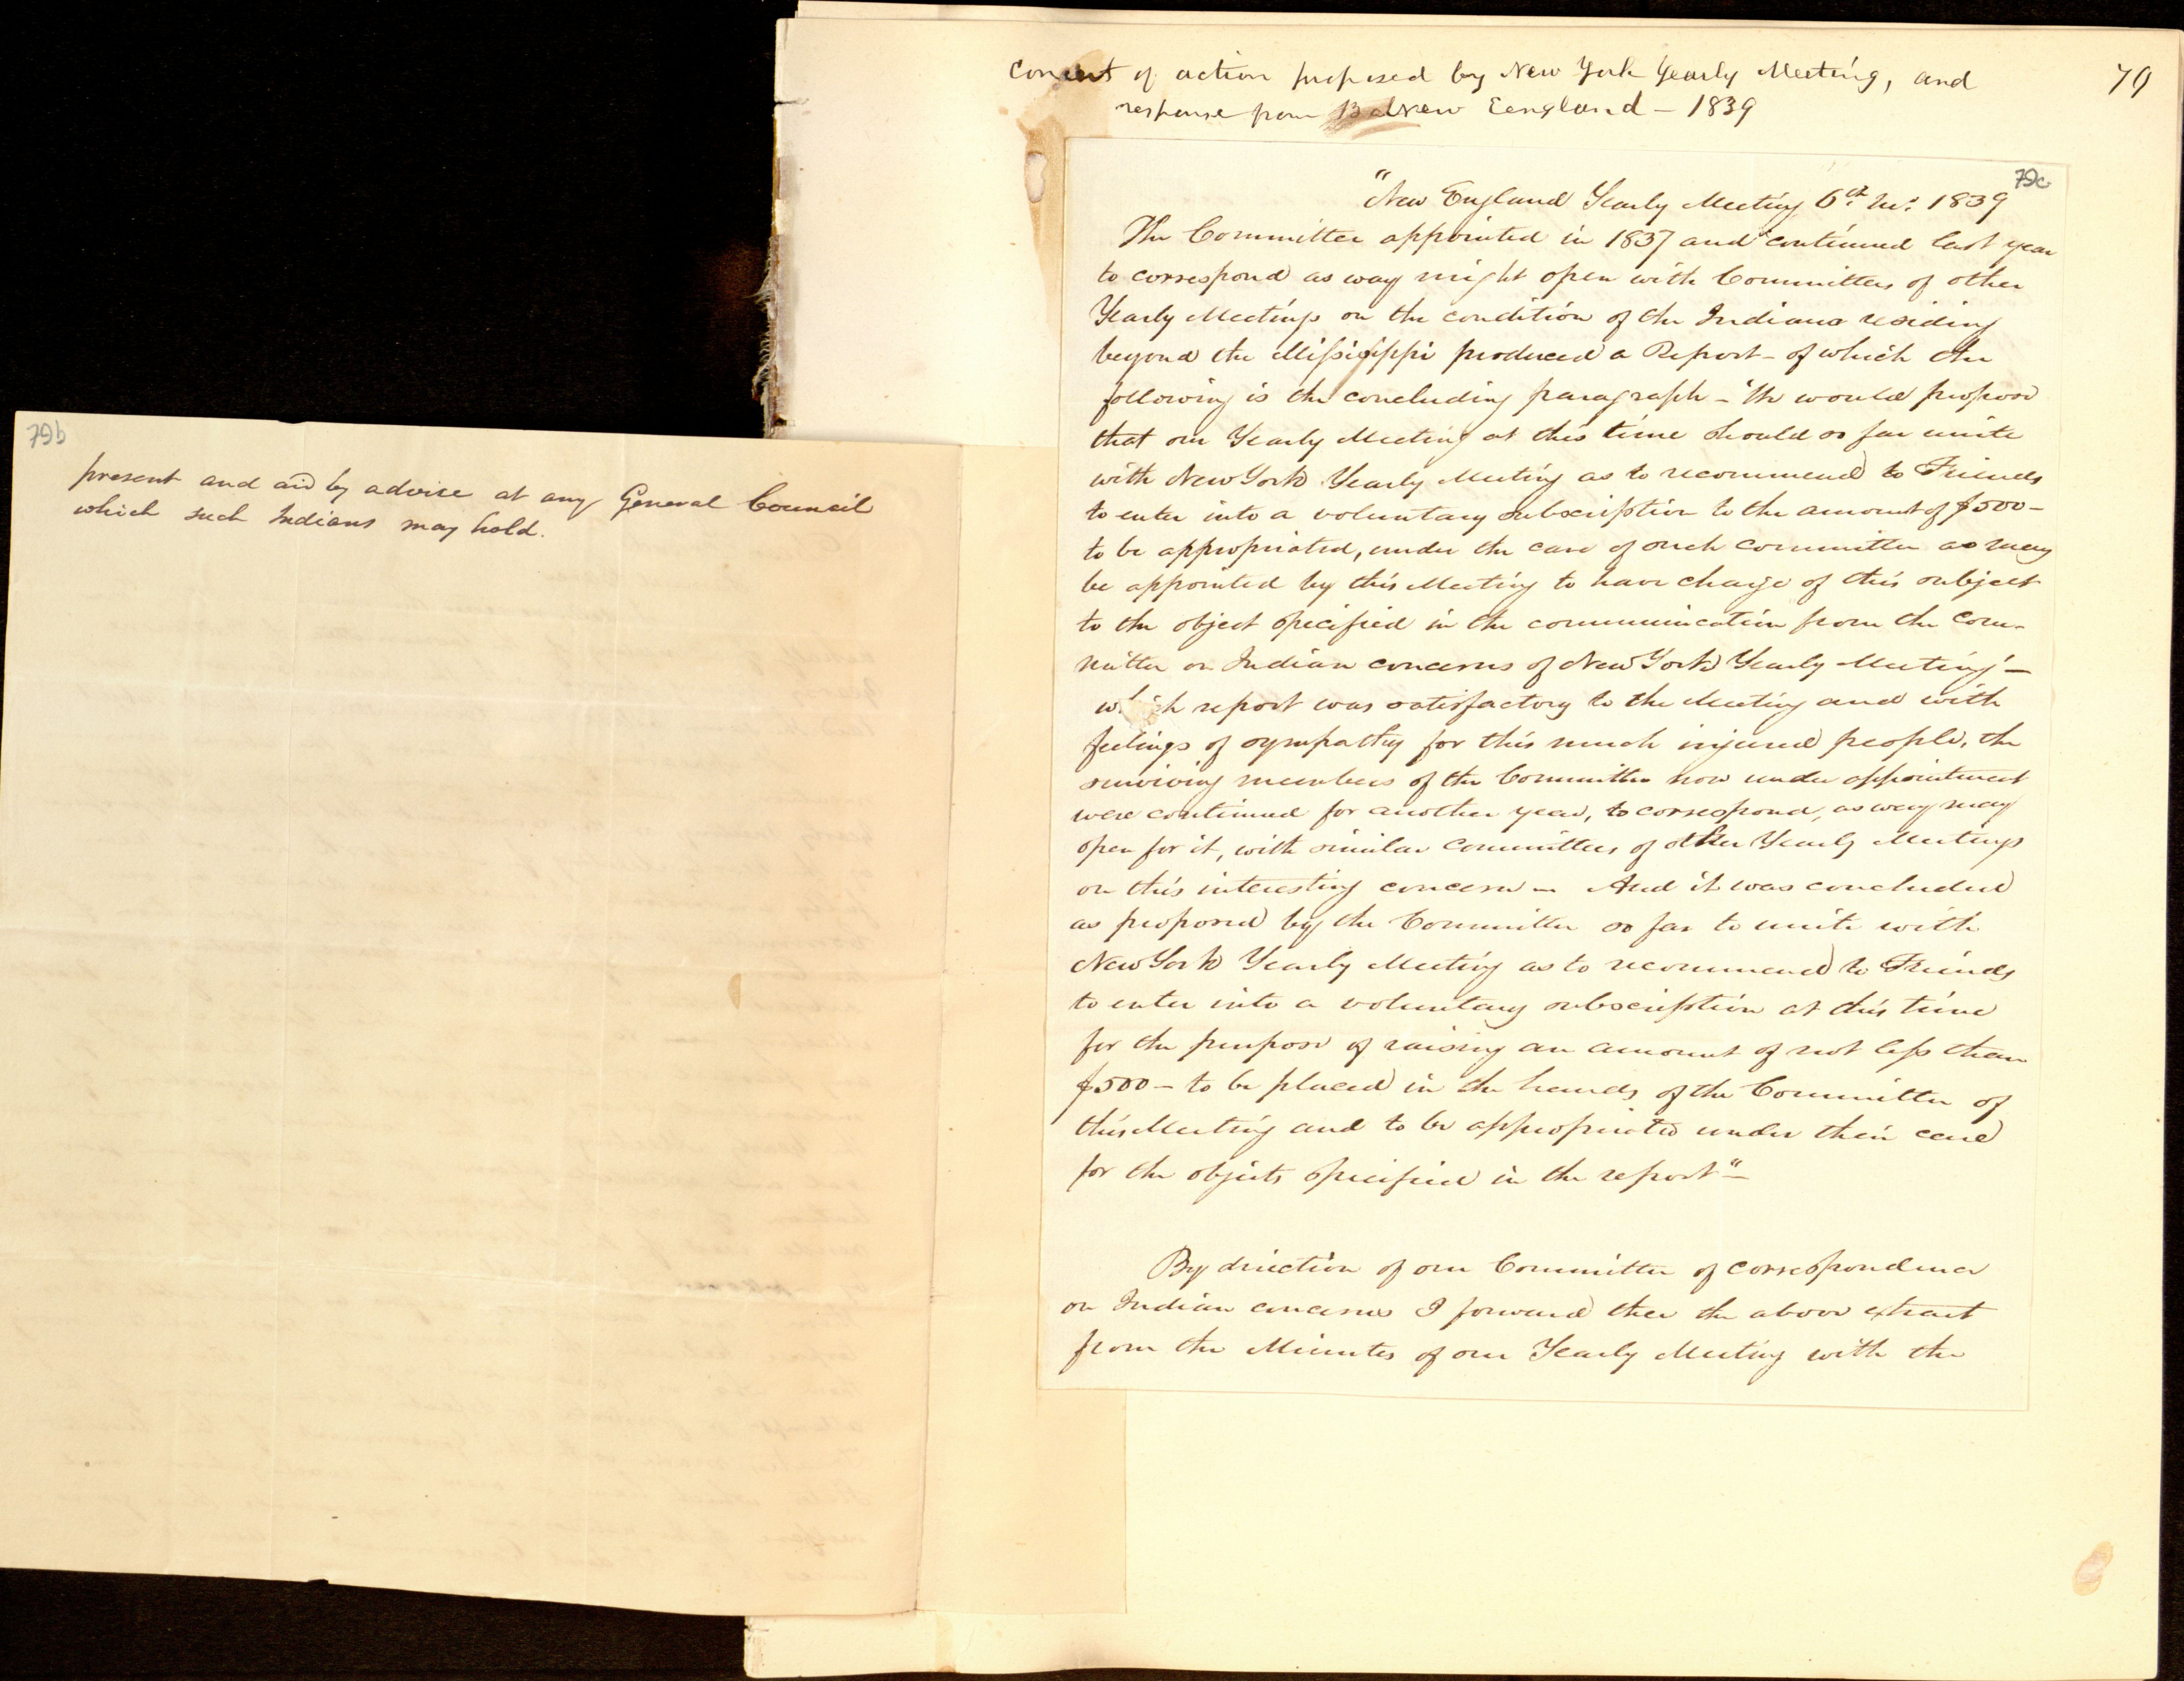 Concert of action proposed by New York Yearly Meeting, and
response from New England - 1839
79
79b
present and aid by advise at any General Council
which such Indians may hold.
79c
"New England Yearly Meeting 6th Mo: 1839
The Committee appointed in 1837 and continued last year
to correspond as way might open with Committees of other
Yearly Meetings on the condition of the Indians residing
beyond the Missisippi produced a Report - of which the
following is the concluding paragraph - "We would propose
that our Yearly Meeting at this time should so far unite
with New York Yearly Meeting as to recommend to Friends
to enter into a voluntary subscription to the amount of $500 -
to be appropriated, under the care of such committee as may
be appointed by this Meeting to have charge of this subject
to the object specified in the communication from the Com-
mittee on Indian concerns of New York Yearly Meeting' -
which report was satisfactory to the Meeting and with
feelings of sympathy for this much injured people, the
surviving members of the Committee now under appointment
were continued for another year, to correspond, as way may
open for it, with similar Committees of other Yearly Meetings
on this interesting concern - And it was concluded
as proposed by the Committee so far to unite with
New York Yearly Meeting as to recommend to Friends
to enter into a voluntary subscription at this time
for the purpose of raising an amount of not less than
$500 - to be placed in the hands of the Committee of
this Meeting and to be appropriated under their care
for the objects specified in the report" -
By direction of our Committee of correspondence
on Indian concerns I forward thee the above extract
from the Minutes of our Yearly Meeting with the